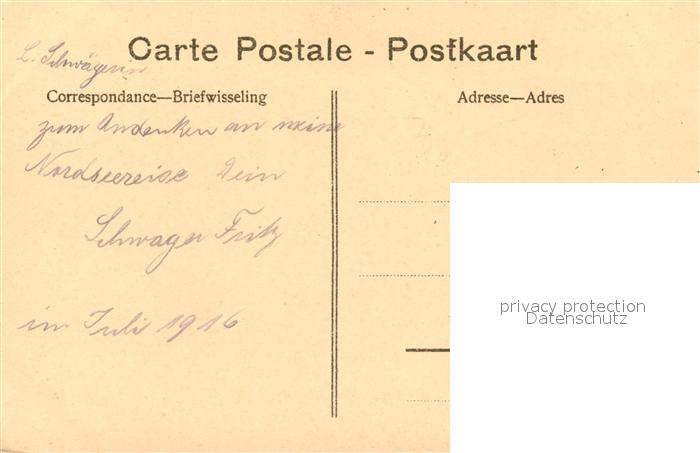 Carte Postale - Postkaart
L. Schwägerin
Correspondance—Briefwisseling
Adresse—Adres
zum Andenken an meine
Nordseereise Dein
Schwager Fritz
im Juli 1916
privacy protection
Datenschutz